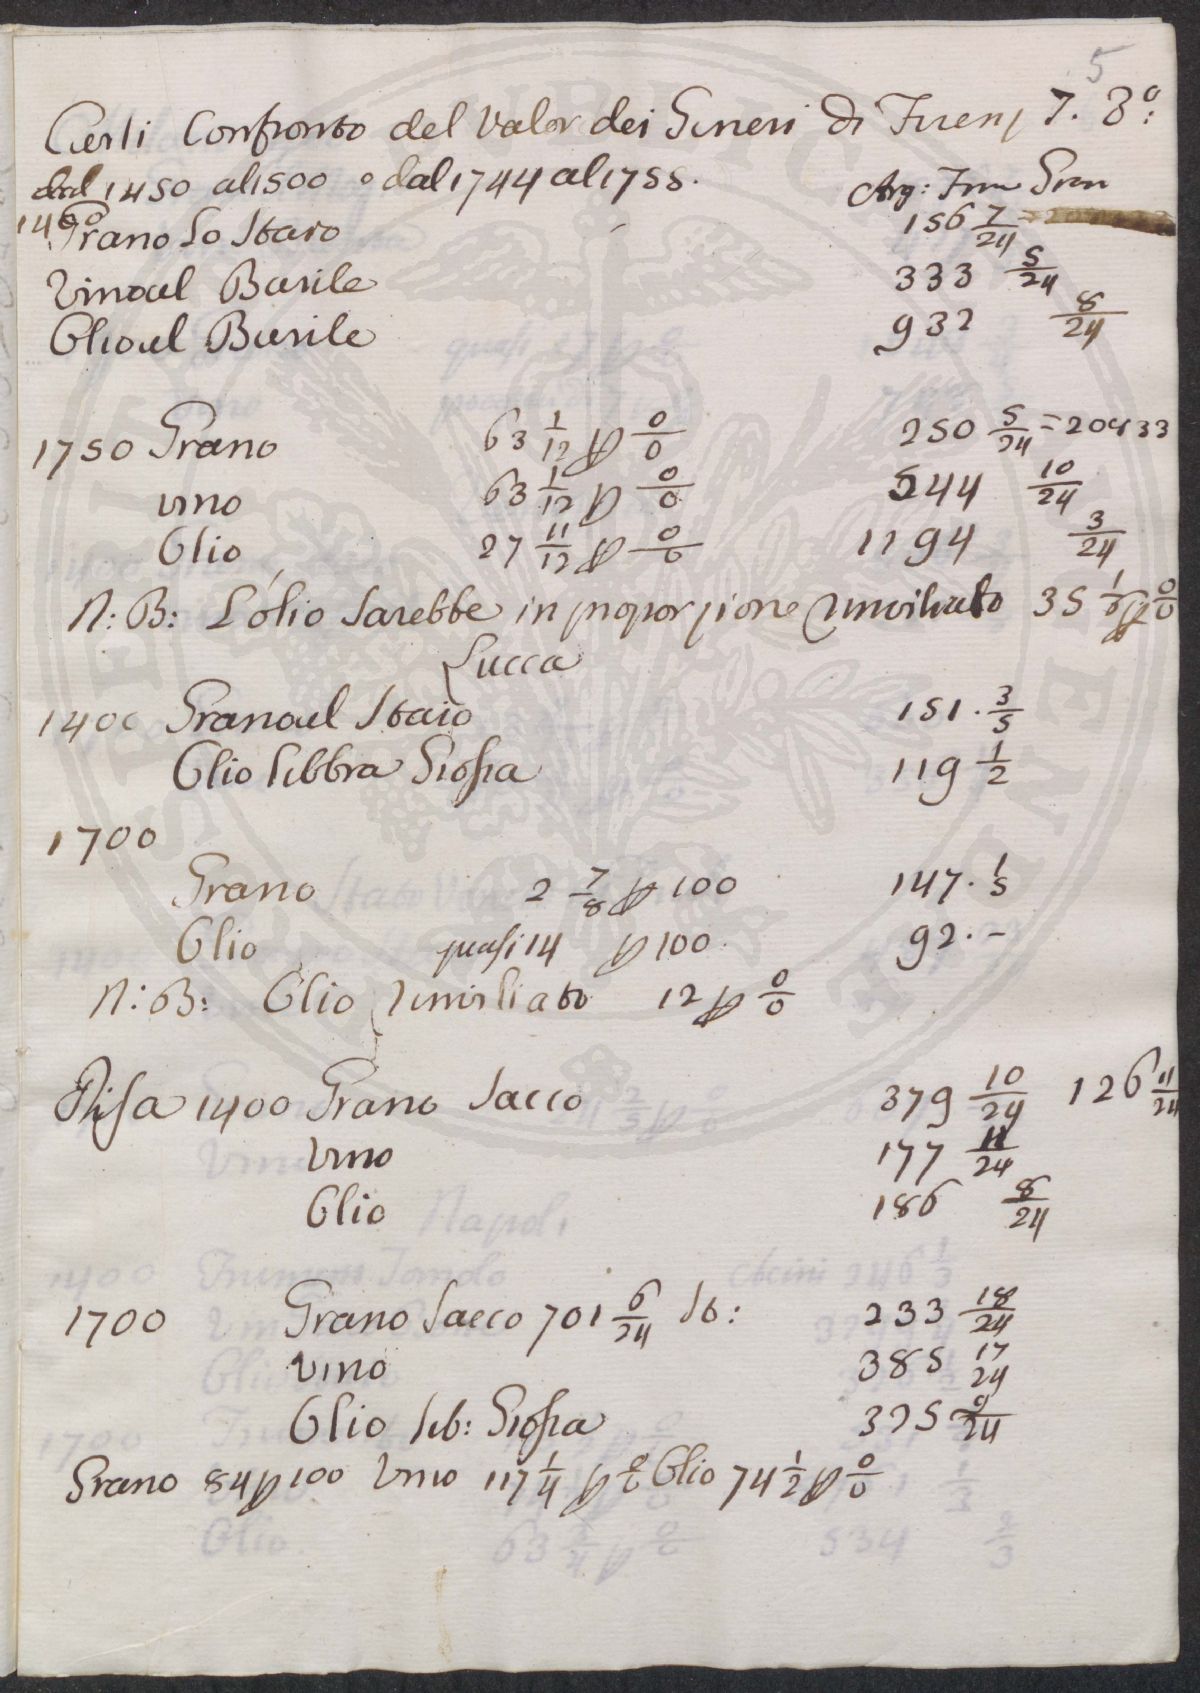 5
Carli Confronto del Valor dei Generi di Firenz T. 3º:
dal 1450 al 1500 o dal 1744 al 1755.
Arg: Fino Gran
1460
Grano lo Staio 156 7/24
Vino al Barile 333 5/24
Olio al Barile 932 8/24
1750 Grano 63 1/12 p 0/0 250 5/24 = 20433
vino 63 1/12 p 0/0 544 10/24
Olio 27 11/12 p 0/0 1194 3/24
N: B: L'olio sarebbe in proporzione rinviliato 35 1/6 p 0/0
Lucca
1400 Grano al Staio 151. 3/5
Olio libbra Grossa 119 1/2
1700
Grano 2 7/8 p 100 147. 1/5
Olio quasi 14 p 100. 92. -
N: B: Olio rinviliato 12 p 0/0
Pisa 1400 Grano Sacco 379 10/24 126 11/24
vino 177 11/24
Olio 186 8/24
1700 Grano Sacco 701 6/24 St: 233 18/24
vino 385 17/24
Olio lib: Grossa 325 9/24
Grano 84 p 100 Vino 117 1/4 p 0/0 Olio 74 1/2 p 0/0